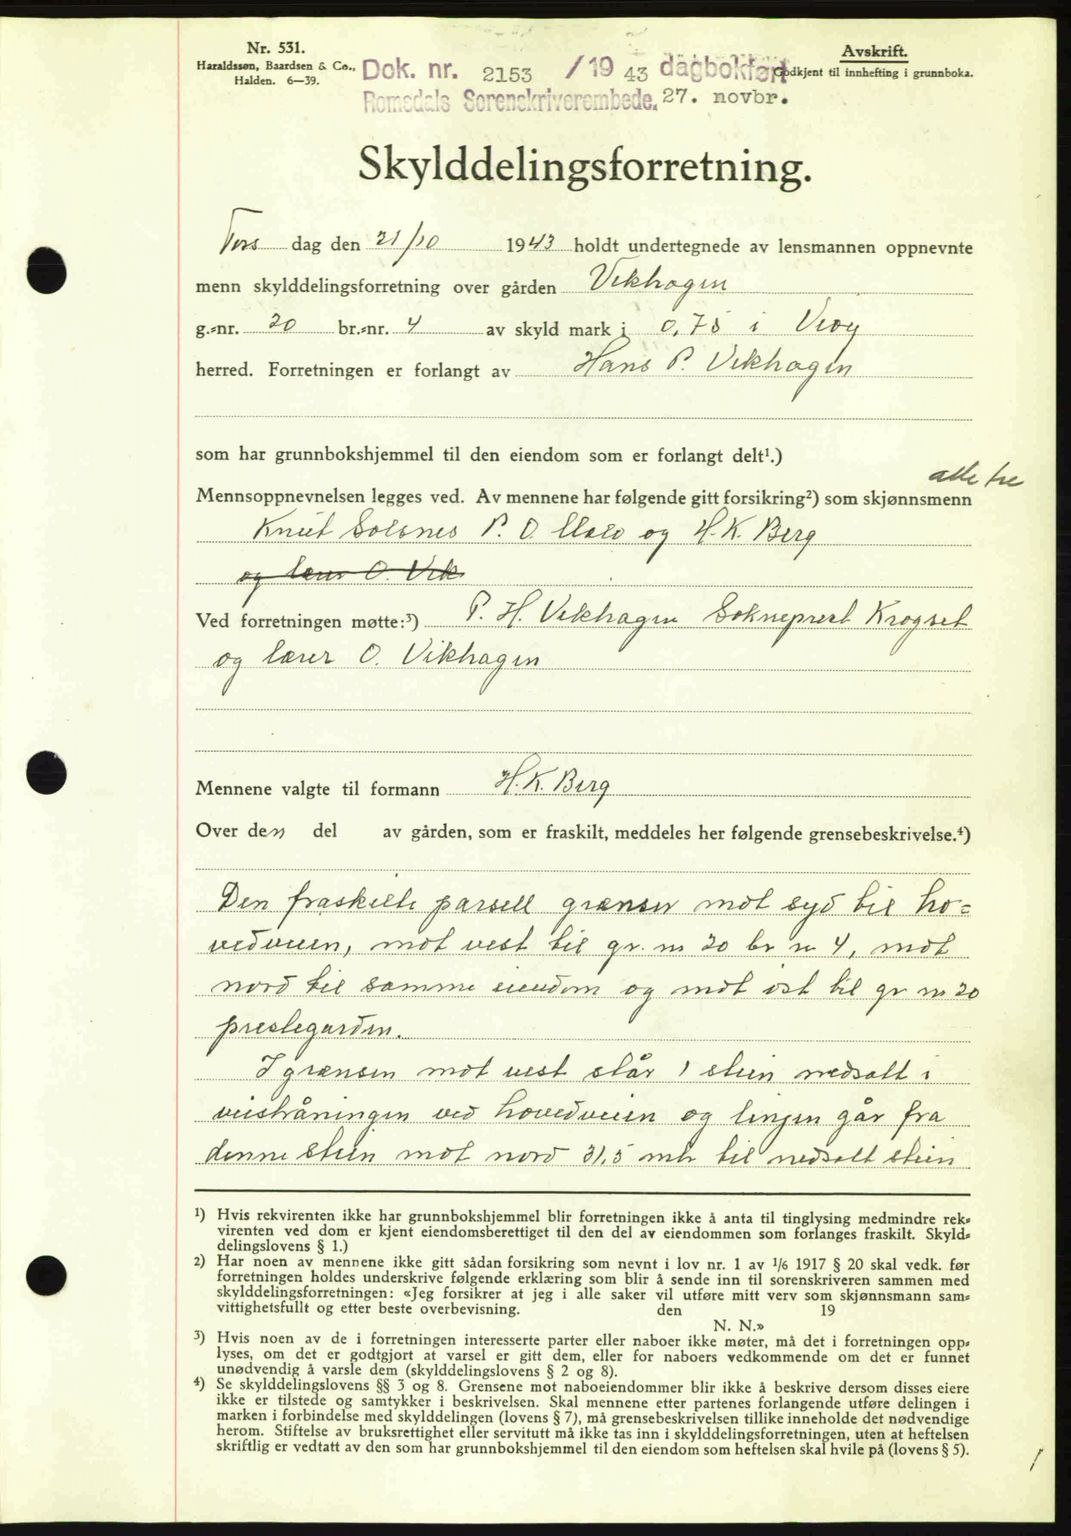 Nr. 531.
Haraldssøn, Baardsen & Co.,
Halden. 6—39.
Dok. nr. 2153 /19 43 dagbokført
Romsdals Sorenskriverembede. 27. novbr.
Avskrift.
Godkjent til innhefting i grunnboka.
Skylddelingsforretning.
Tors dag den 21/10 1943 holdt undertegnede av lensmannen oppnevnte
menn skylddelingsforretning over gården Vikhagen
g.-nr. 20 br.-nr. 4 av skyld mark i 0,75 i Veøy
herred. Forretningen er forlangt av Hans P. Vikhagen
som har grunnbokshjemmel til den eiendom som er forlangt delt¹.)
alle tre
Mennsoppnevnelsen legges ved. Av mennene har følgende gitt forsikring²) som skjønnsmenn
Knut Solsnes P. O. og H. K. Berg
og lærer O. Vik
Ved forretningen møtte:³) P. H. Vikhagen Sokneprest Krogset
og lærer O. Vikhagen
Mennene valgte til formann H. K. Berg
Over den del av gården, som er fraskilt, meddeles her følgende grensebeskrivelse.⁴)
Den fraskilte parsell grenser mot syd til ho-
vedveien, mot vest til gr. nr 20 br nr 4, mot
nord til samme eiendom og mot øst til gr nr 20
prestegarden.
I grensen mot vest står 1 stein nedsatt i
veiskråningen ved hovedveien og linjen går fra
denne stein mot nord 31,5 mtr til nedsatt stein
¹) Hvis rekvirenten ikke har grunnbokshjemmel blir forretningen ikke å anta til tinglysing medmindre rek-
virenten ved dom er kjent eiendomsberettiget til den del av eiendommen som forlanges fraskilt. Skyld-
delingslovens § 1.)
²) Har noen av mennene ikke gitt sådan forsikring som nevnt i lov nr. 1 av 1/6 1917 § 20 skal vedk. før
forretningen holdes underskrive følgende erklæring som blir å sende inn til sorenskriveren sammen med
skylddelingsforretningen: «Jeg forsikrer at jeg i alle saker vil utføre mitt verv som skjønnsmann sam-
vittighetsfullt og etter beste overbevisning. den 19
N. N.»
³) Hvis noen av de i forretningen interesserte parter eller naboer ikke møter, må det i forretningen opp-
lyses, om det er godtgjort at varsel er gitt dem, eller for naboers vedkommende om det er funnet
unødvendig å varsle dem (skylddelingslovens § 2 og 8).
⁴) Se skylddelingslovens §§ 3 og 8. Grensene mot naboeiendommer blir ikke å beskrive dersom disses eiere
ikke er tilstede og samtykker i beskrivelsen. Skal mennene etter partenes forlangende utføre delingen i
marken i forbindelse med skylddelingen (lovens § 7), må grensebeskrivelsen tillike inneholde det nødvendige
herom. Stiftelse av bruksrettighet eller servitutt må ikke tas inn i skylddelingsforretningen, uten at heftelsen
skriftlig er vedtatt av den som har grunnbokshjemmel til den eiendom som heftelsen skal hvile på (lovens § 5).